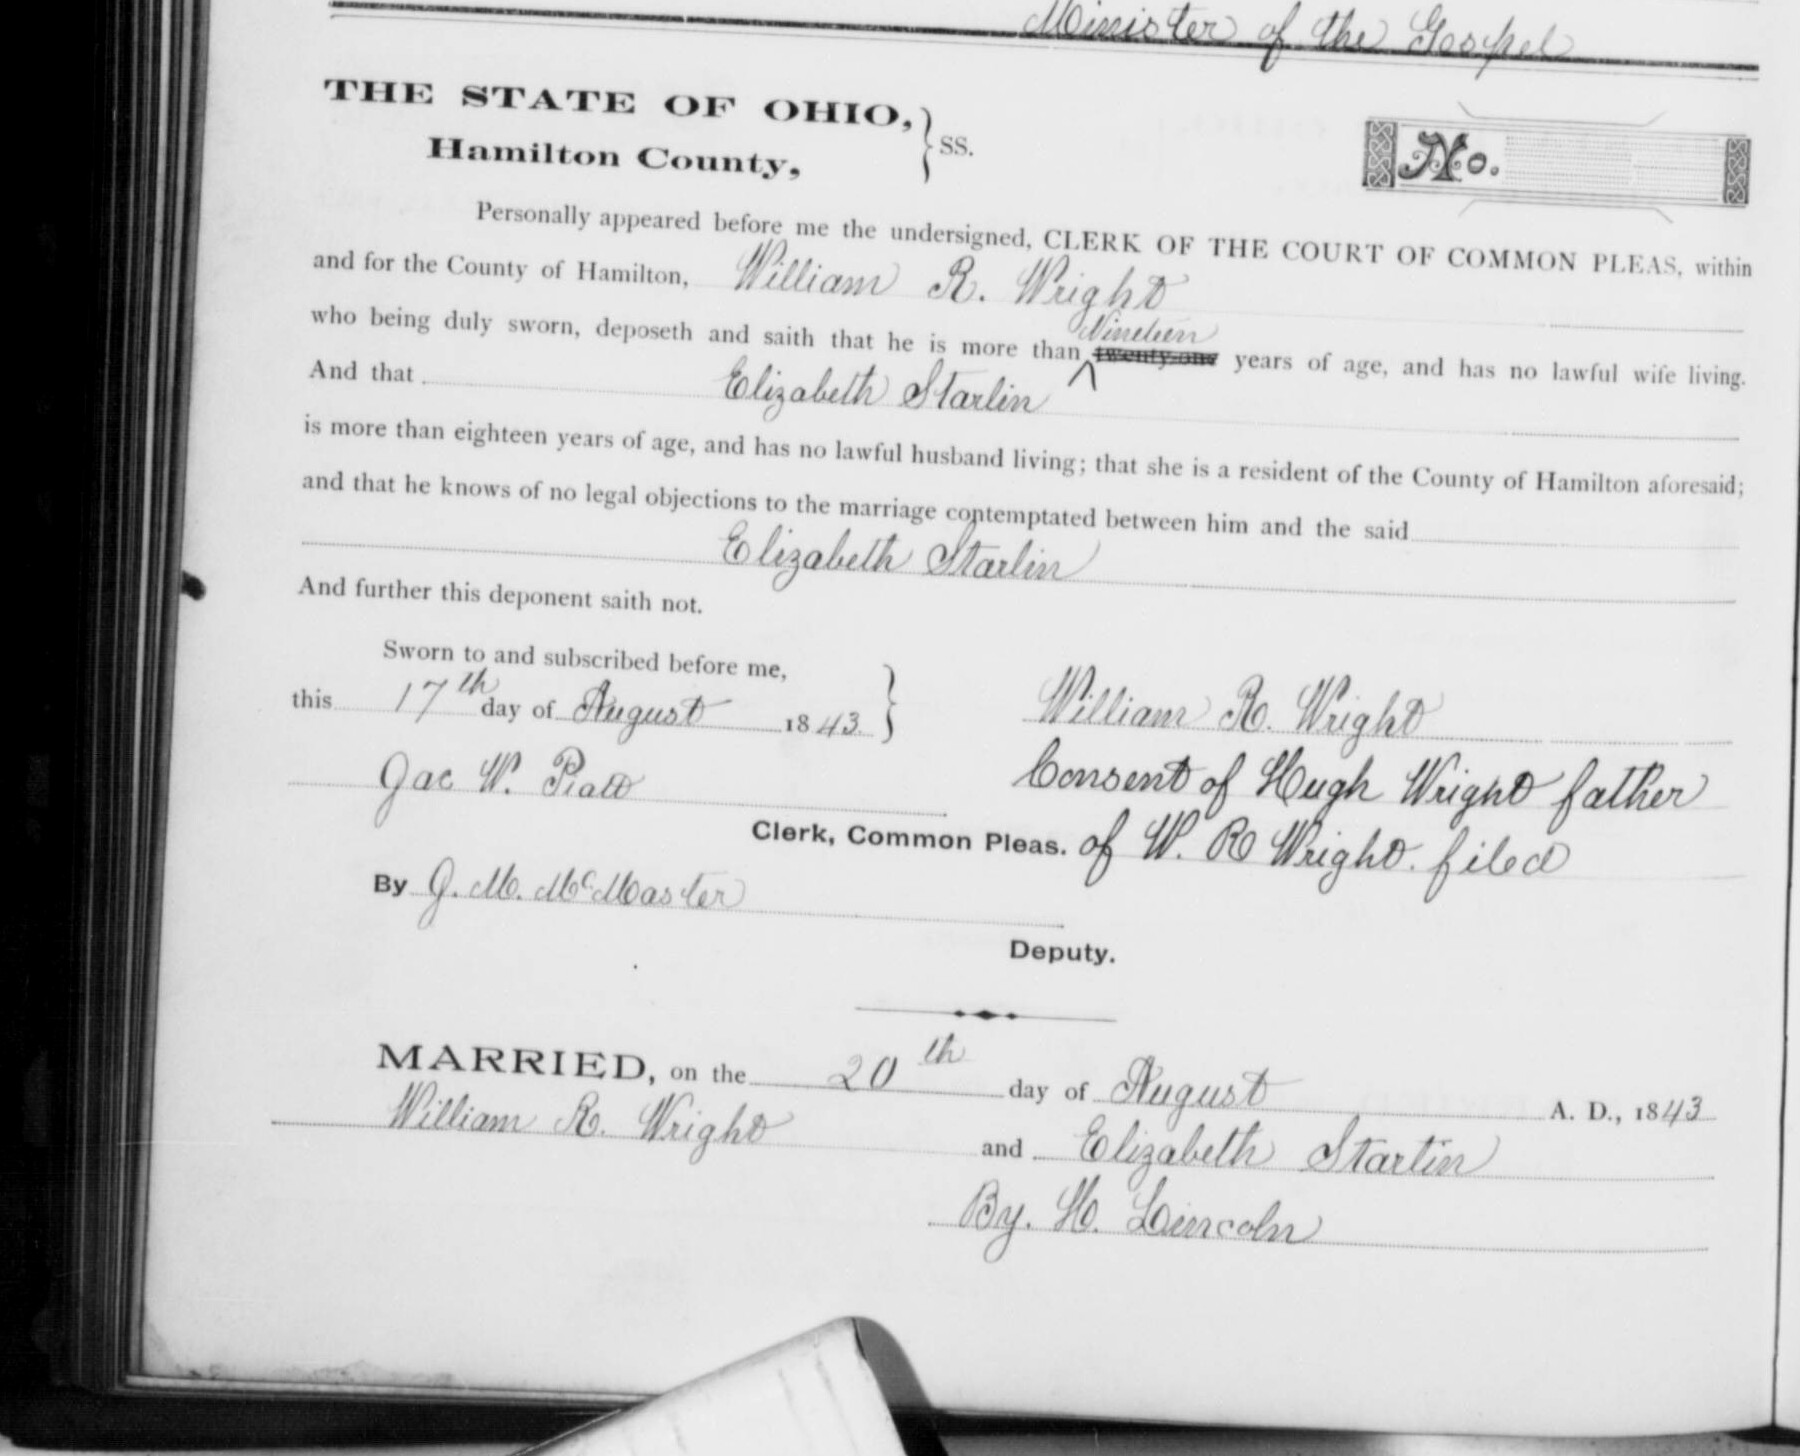 Minister of the Gospel
THE STATE OF OHIO,
Hamilton County,
SS.
No.
Personally appeared before me the undersigned, CLERK OF THE COURT OF COMMON PLEAS, within
and for the County of Hamilton, William R. Wright
who being duly sworn, deposeth and saith that he is more than Nineteen twenty-one years of age, and has no lawful wife living.
And that Elizabeth Starlin
is more than eighteen years of age, and has no lawful husband living; that she is a resident of the County of Hamilton aforesaid;
and that he knows of no legal objections to the marriage contemptated between him and the said
Elizabeth Starlin
And further this deponent saith not.
Sworn to and subscribed before me,
this 17th day of August 1843
William R. Wright
Jac W. Piatt
Clerk, Common Pleas.
Consent of Hugh Wright father
of W. R Wright. filed
By J. M. McMaster
Deputy.
MARRIED, on the 20th day of August A. D., 1843
William R. Wright and Elizabeth Starlin
By. H. Lincoln